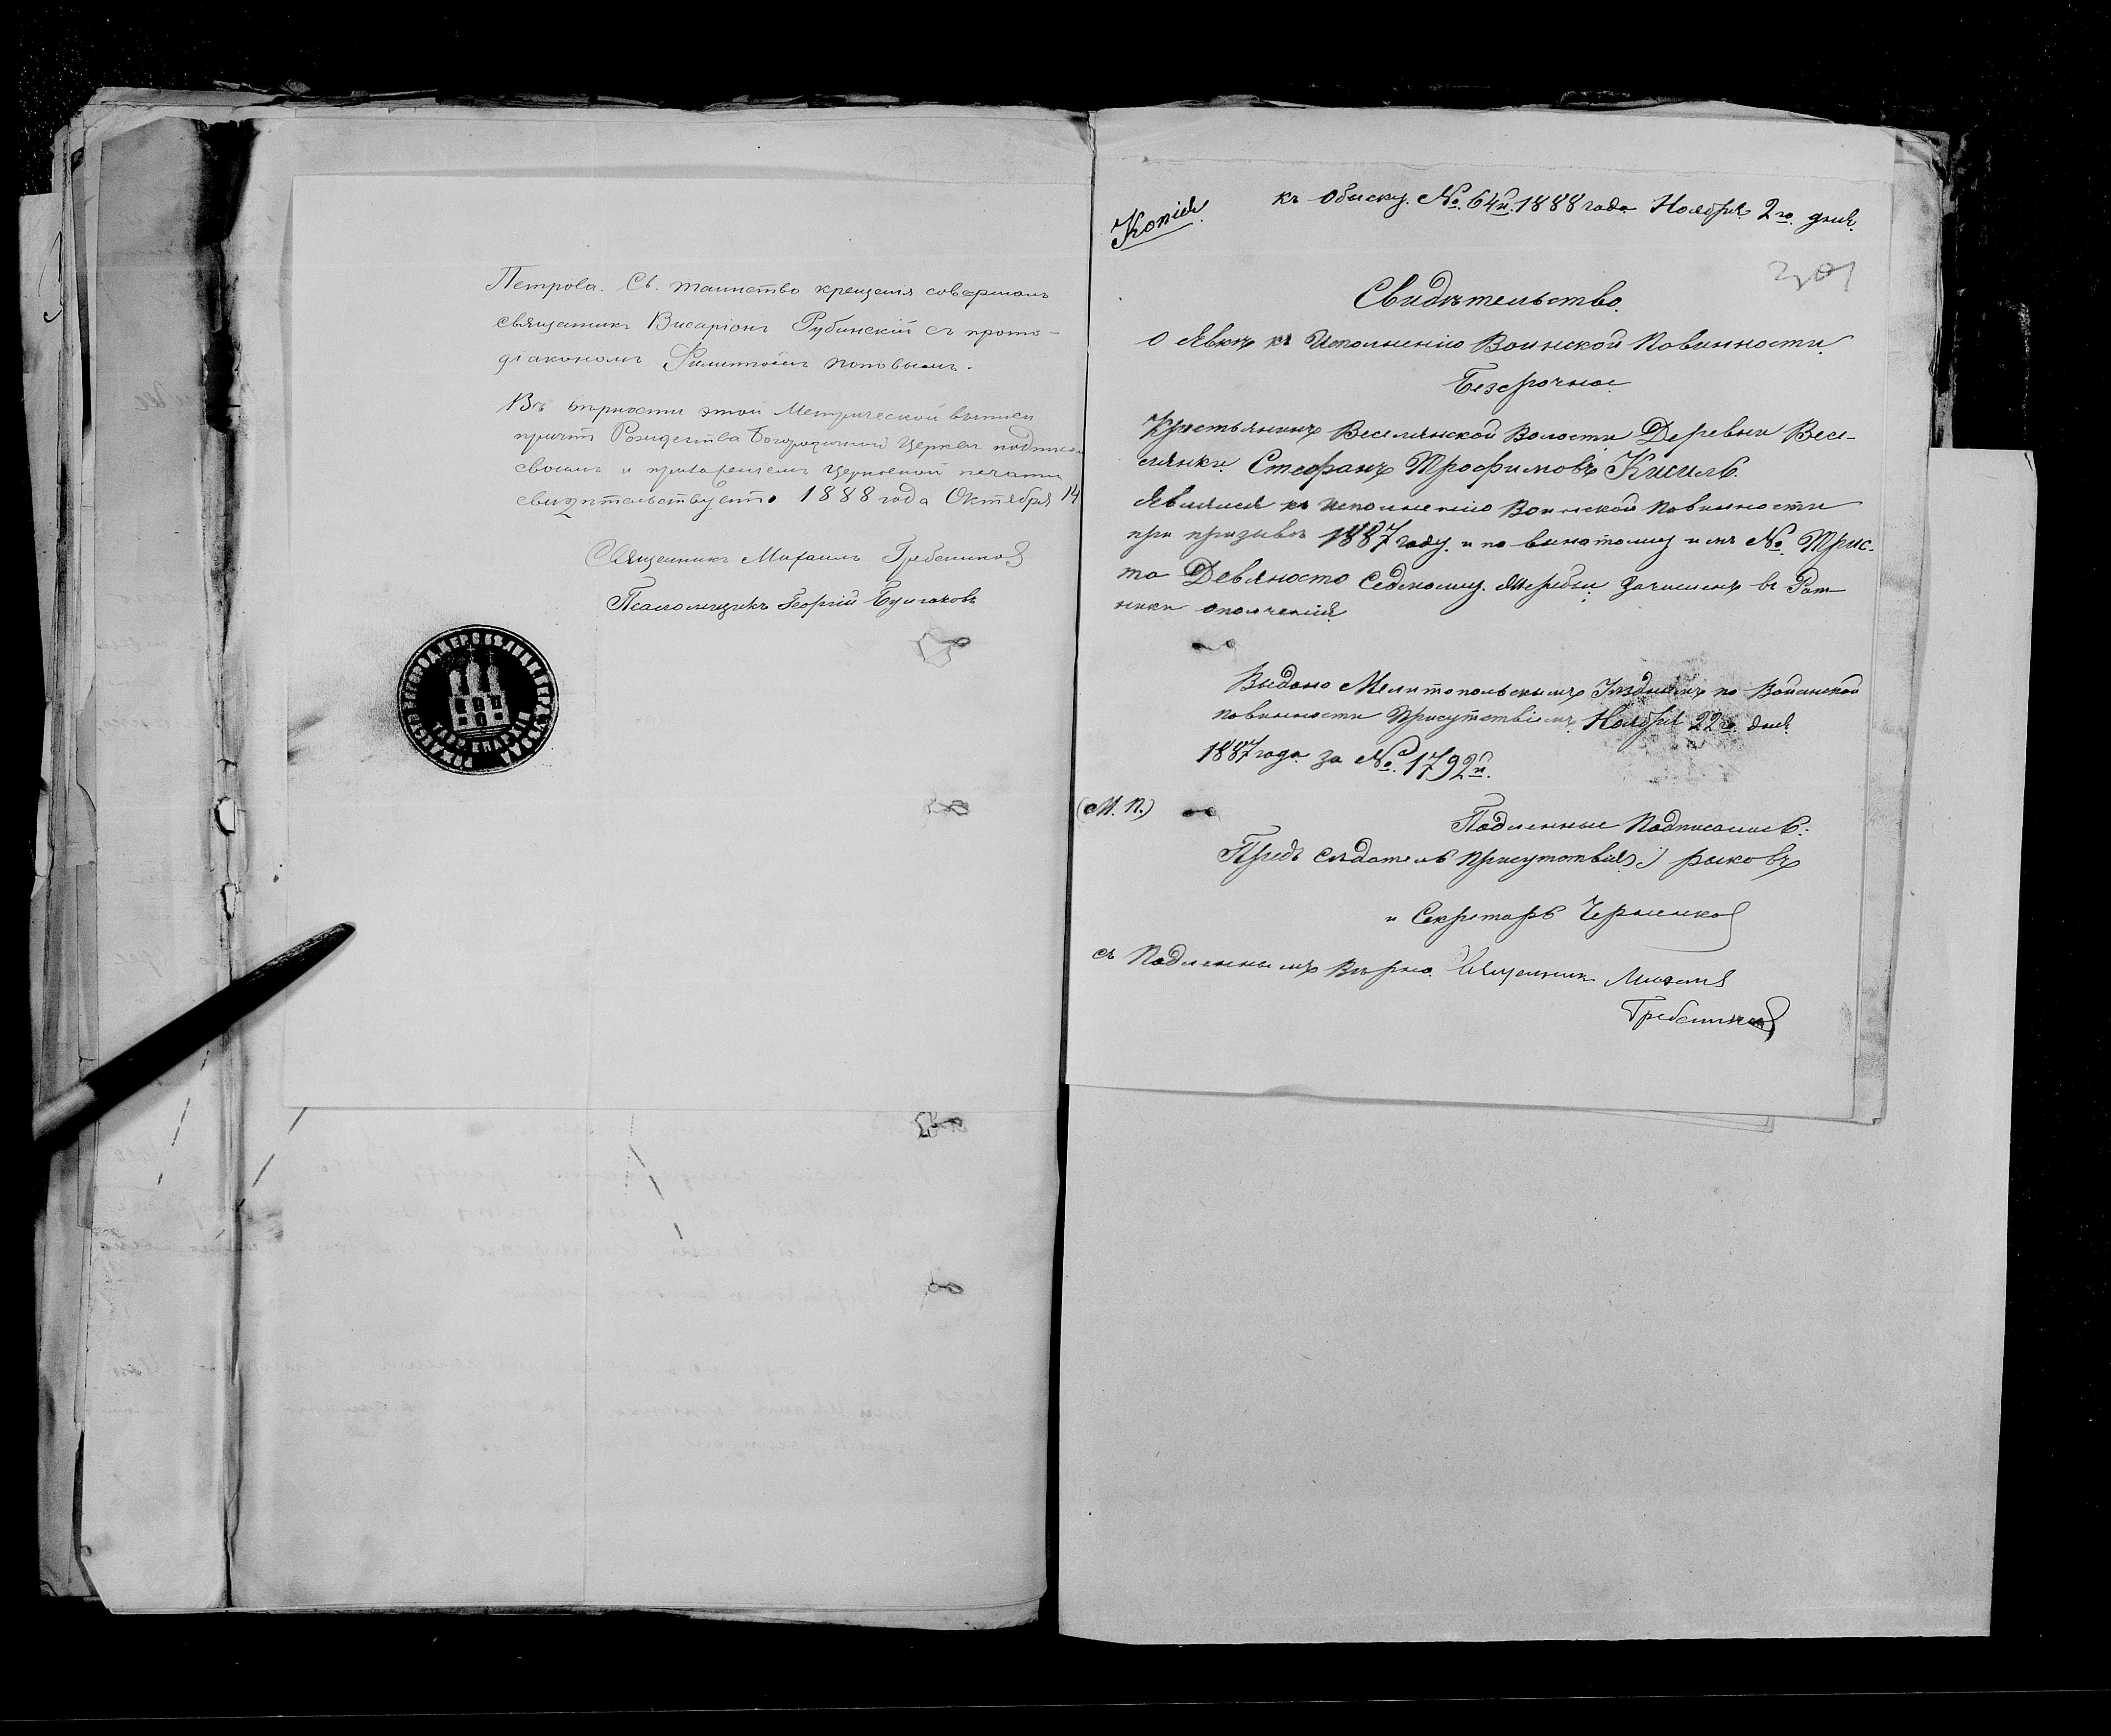 Петрова. Св. таинство крещенія совершалъ
священникъ Висаріонъ Рубинскій съ прото-
діакономъ Филиппомъ Поповымъ.
Въ вѣрности этой Метрической выписи
причтъ Рождества Богородичной Церкви подписомъ
своимъ и приложеніемъ церковной печати
свидѣтельствуетъ 1888 года Октября 14
Священникъ Михаилъ Гребенниковъ
Псаломщикъ Георгій Булгаковъ
ТАВР. ЕПАРХІИ
Копія.
къ Обыску. №. 64й. 1888 года Ноября 2го. дня.
Свидѣтельство.
О Явкѣ къ Исполненію Воинской Повинности.
Безсрочное
Крестьянинъ Веселянской Волости Деревни Весе-
лянки Стефанъ Трофимовъ Кисиль.
Являлся къ исполненію Воинской Повинности
при призывѣ 1887 году. и по вынатому имъ №. Трис-
та Девяносто Седьмому. Жребію. зачисленъ въ Рат-
ники ополченія
Видано Мелитопольскимъ Уѣзднымъ по Воинской
повинности Присутствіемъ Ноября 22го. дня
1887 года за №. 1792й.
(М. П.)
Подленные Подписались:
Предсѣдатель Присутствія) Рыковъ
и Секретарь Черненков
съ Подленнымъ Вѣрно. Священник Михаил
Гребенников